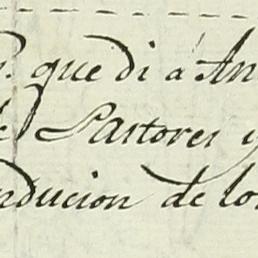 que di á An
Pastores y
nducion de los